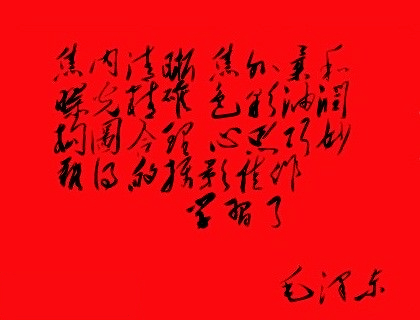 焦内清晰 焦外柔和
曝光精确 色彩油润
构图合理 心思巧妙
难得的摄影佳作
学习了
毛泽东